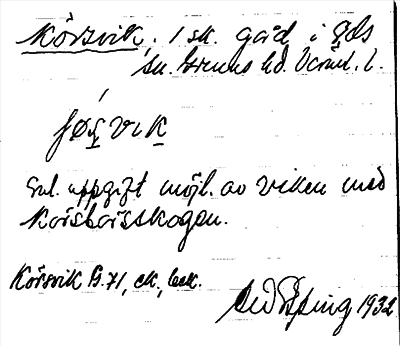 Körsvik. 1 sk. gård i Eds
sn. Grums hd. Värml. l.
Enl. uppgift möjl. av viken med
Körsbärsskogen.
Körsvik G. 71, ek., besk.
1932